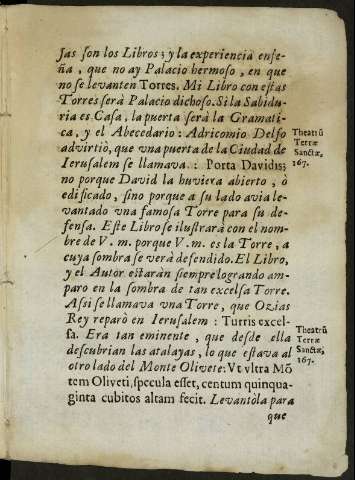 jas son los Libros; y la experiencia ense-
ña, que no ay Palacio hermoso, en que
no se levanten Torres. Mi Libro con estas
Torres serà Palacio dichoso. Si la Sabidu-
ria es Casa, la puerta serà la Gramati-
ca, y el Abecedario: Adricomio Delfo
advirtiò, que vna puerta de la Ciudad de
Ierusalem se llamava: Porta Davidis;
no porque David la huviera abierto, ò
edificado, sino porque a su lado avia le-
vantado vna famosa Torre para su de-
fensa. Este Libro se ilustrarà con el nom-
bre de V. m. porque V. m. es la Torre, a
cuya sombra se verà defendido. El Libro,
y el Autor estaràn siempre logrando am-
paro en la sombra de tan excelsa Torre.
Assi se llamava vna Torre, que Ozias
Rey reparò en Ierusalem: Turris excel-
sa. Era tan eminente, que desde ella
descubrian las atalayas, lo que estava al
otro lado del Monte Olivete: Vt vltra Mõ
tem Oliveti, specula esset, centum quinqua-
ginta cubitos altam fecit. Levantòla para
que
Theatrũ
Terræ
Sanctæ,
167.
Theatrũ
Terræ
Sanctæ,
167.